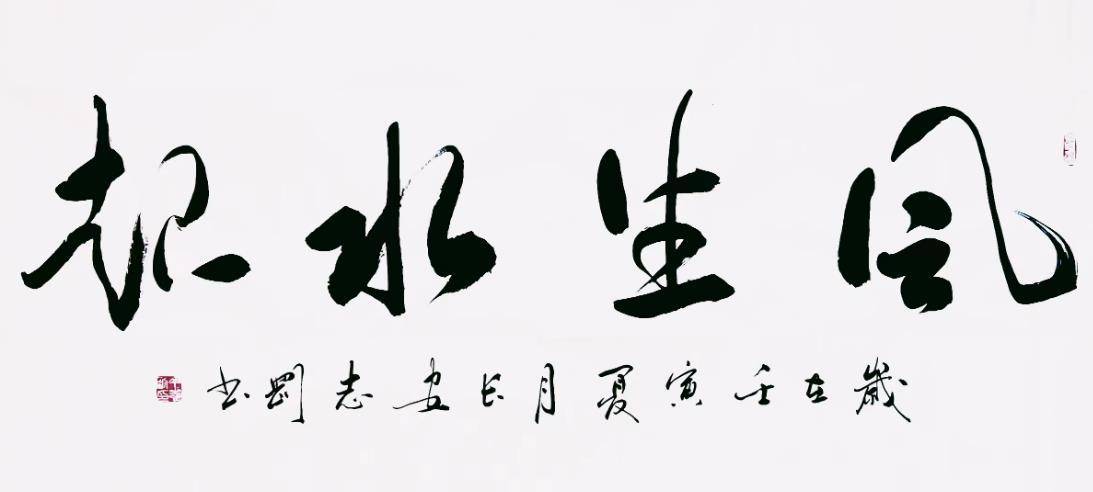 风生水起
歲在壬寅夏月长安志剛书